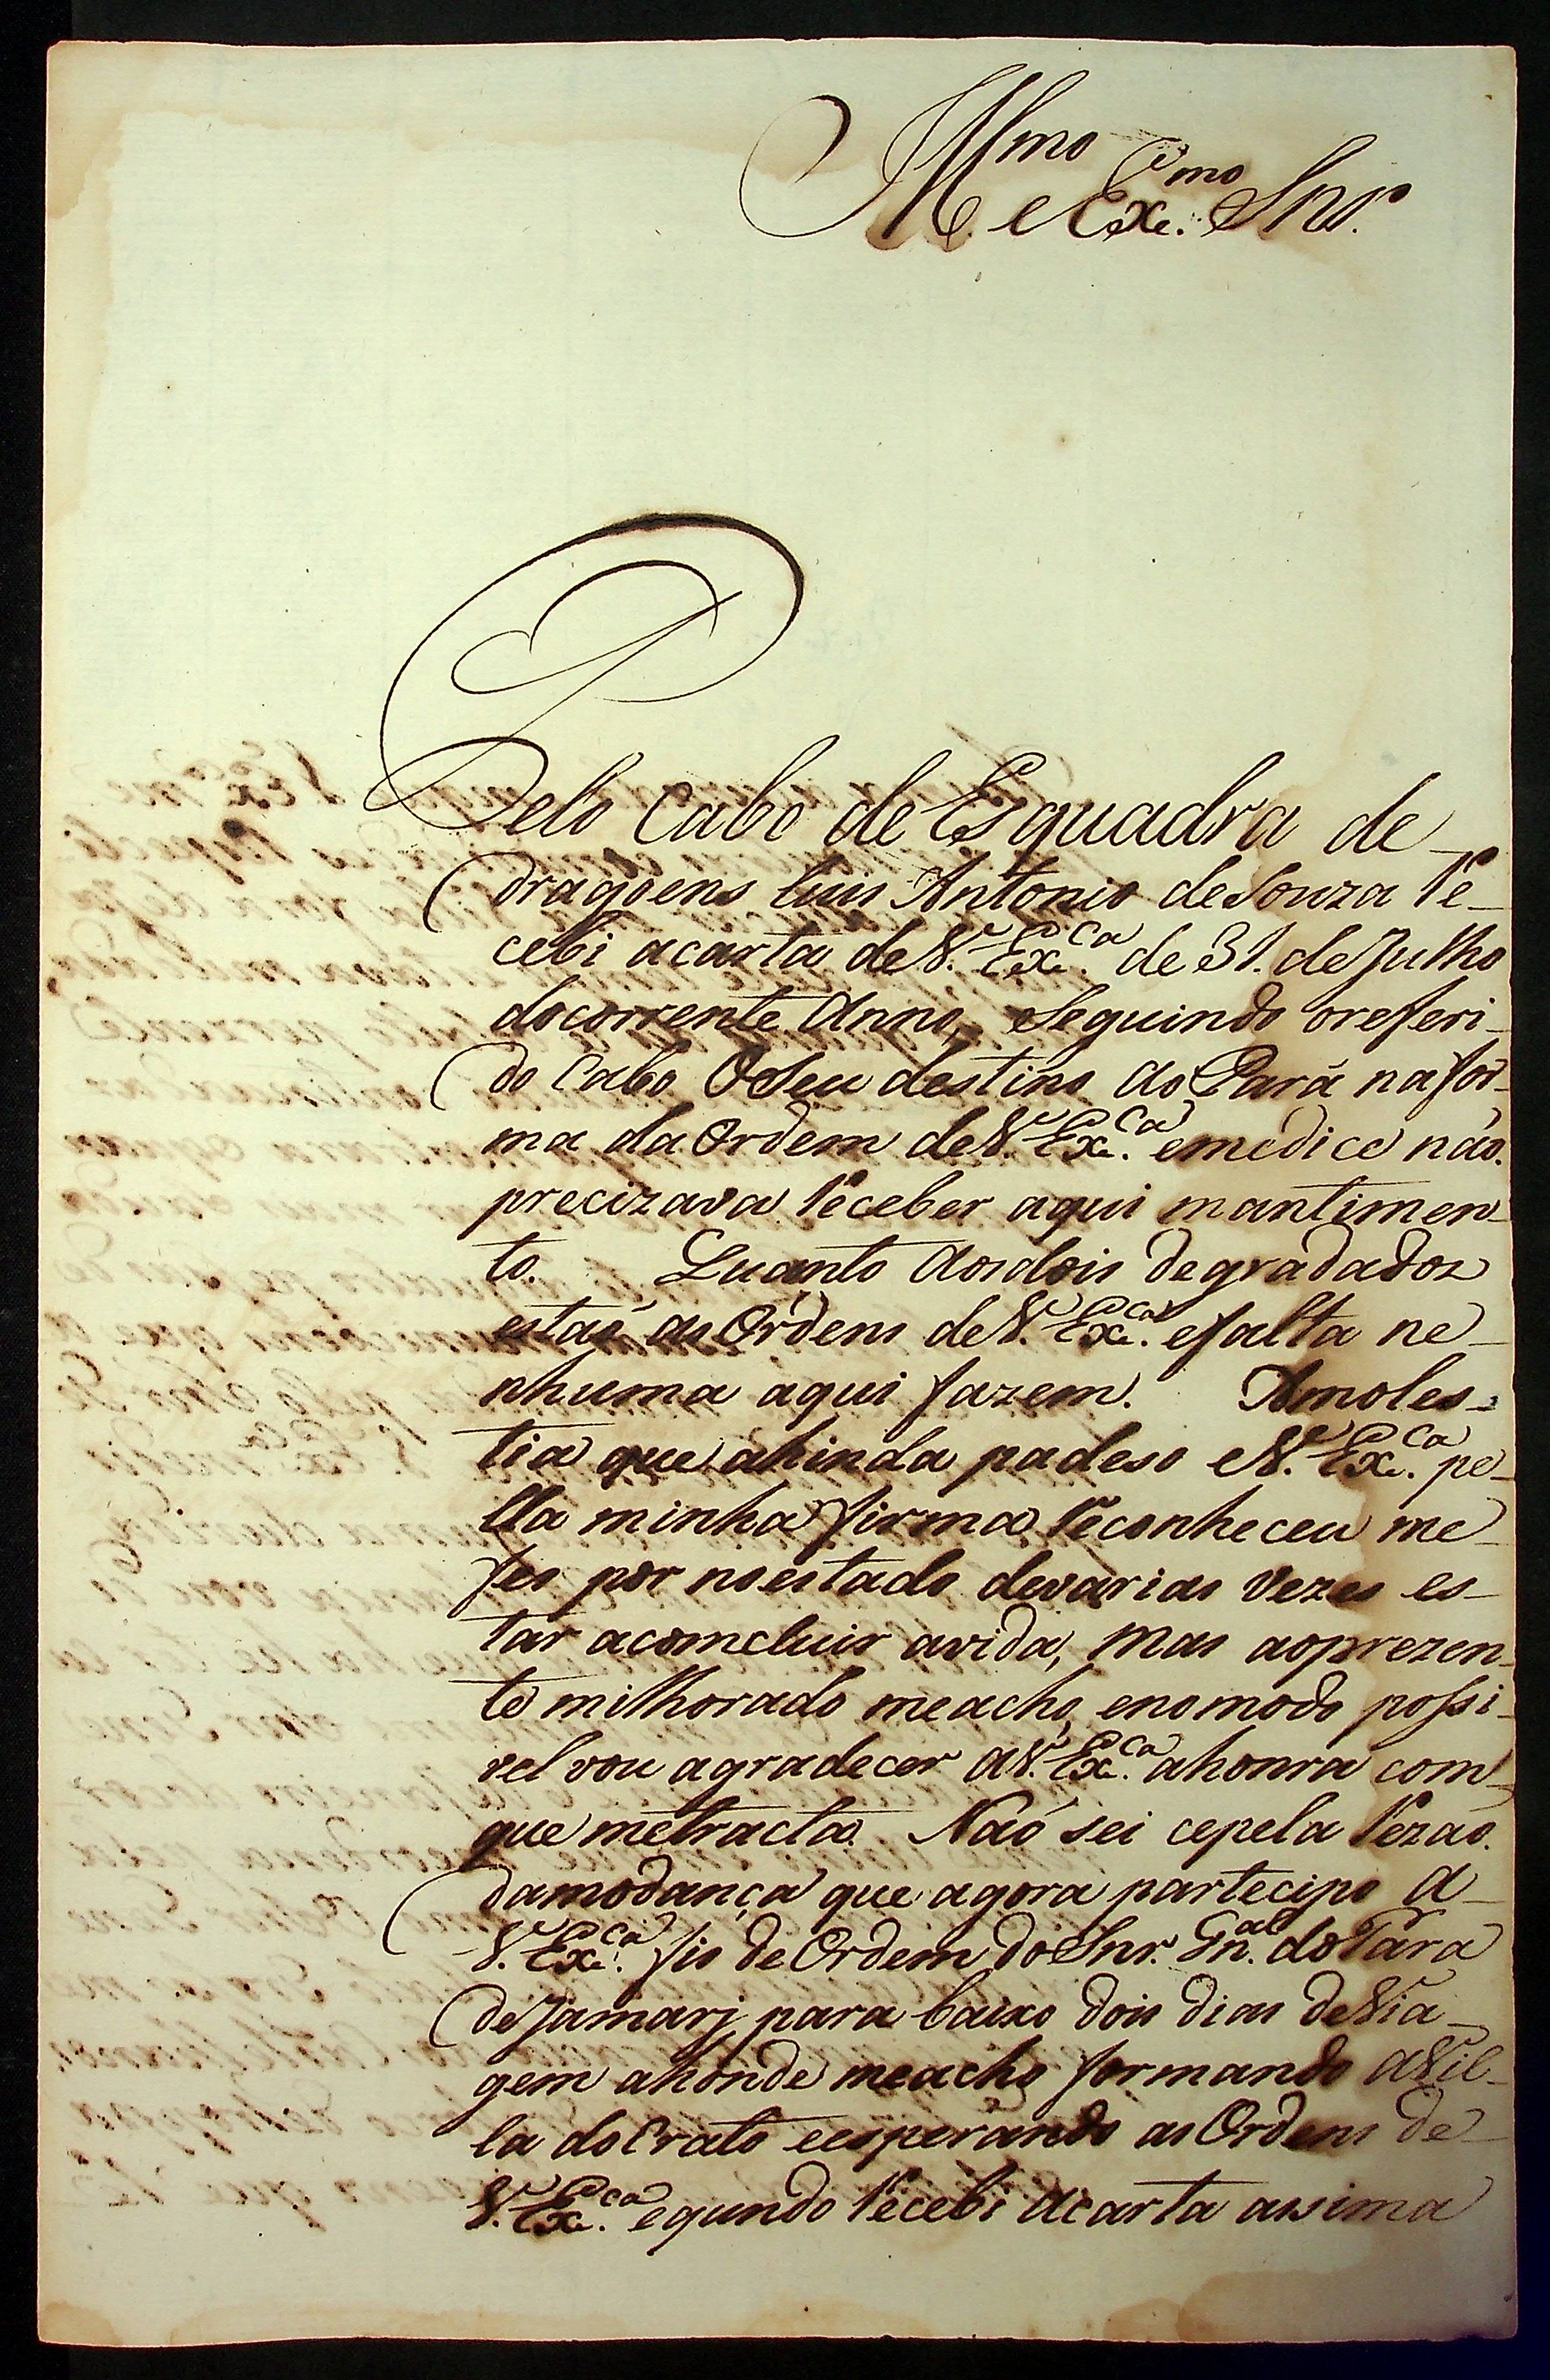 Illmo e Exmo Snr.
Pelo Cabo de Esquadra de
dragoens Luis Antonio de Souza re-
cebi acarta de V. Exca. de 31. de Julho
docorrente Anno, Seguindo oreferi-
do Cabo OSeu destino ao Pará nafor-
ma da Ordem de V. Exca. emedice não
precizava receber aqui mantimen-
to. Quanto Aosdois degradados
estaõ as Ordens de V. Exca. efalta ne-
nhuma aqui fazem. Amoles-
tia que ahinda padeso e V. Exca. pe-
lla minha firma reconheceu me
fes por noestado devarias vezes es-
tar acomcluir avida, mas aoprezen-
te milhorado meacho, enomodo possi-
vel vou agradecer a V. Exca. ahonra com
que metracta. Naõ sei cepela rezaõ
damodança que agora partecipo a
V. Exca. fis de Ordem do Snr. Gnal. do Pará
deJamarj para baixo dois dias deVia-
gem ahonde meacho formando aVil-
la doCrato eesperando as Ordens de
V. Exca. egundo recebi acarta assima